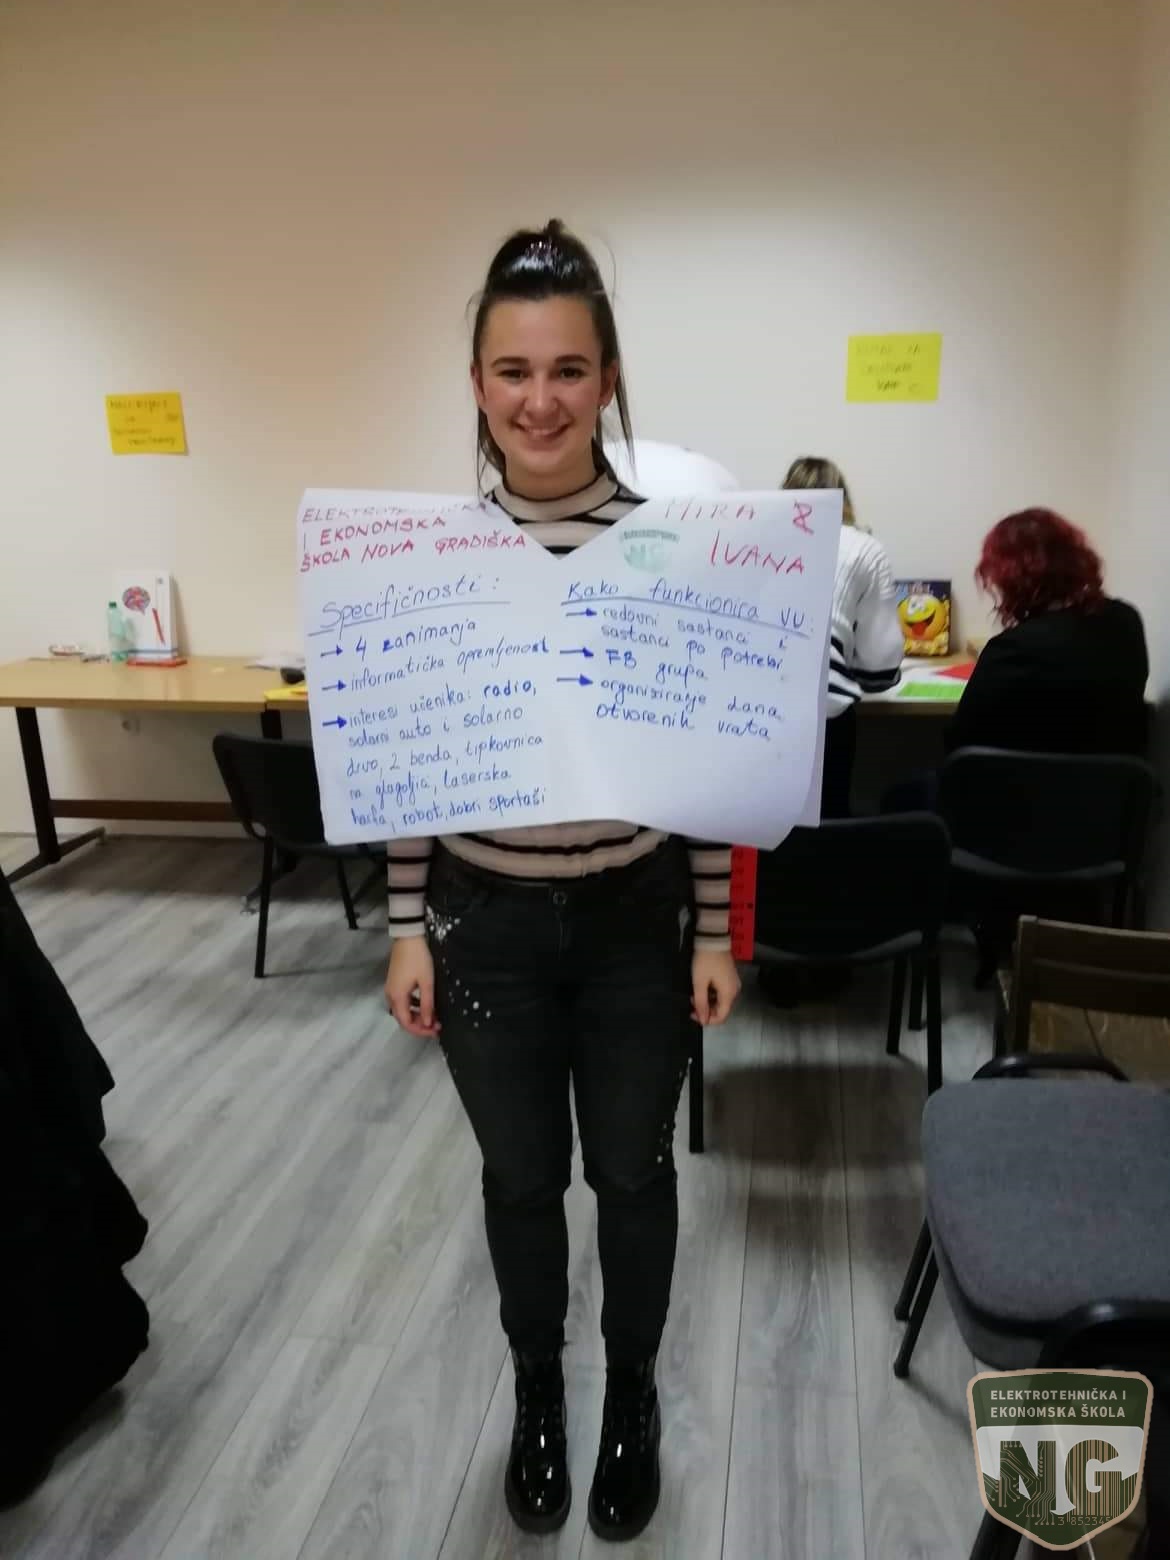 ELEKTROTEHNIČKA
I EKONOMSKA
ŠKOLA NOVA GRADIŠKA
Specifičnosti:
→ 4 zanimanja
→ informatička opremljenost
→ interesi učenika: radio,
solarni auto i solarno
drvo, 2 benda, tipkovnica
na glagoljici, laserska
harfa, robot, dobri sportaši
MIRA
NG
IVANA
Kako funkcionira VU:
→ redovni sastanci i
sastanci po potrebi
→ FB grupa
→ organiziranje dana
otvorenih vrata
ELEKTROTEHNIČKA I
EKONOMSKA ŠKOLA
NG